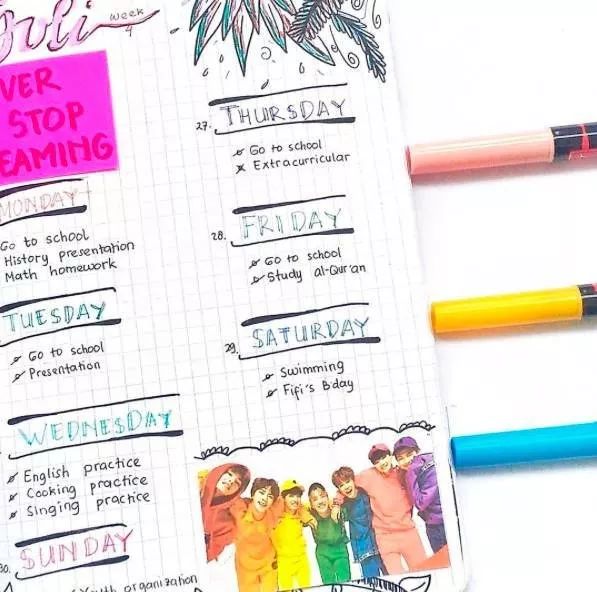 Juli
week
4
VER
STOP
EAMING
MONDAY
Go to school
History presentation
Math homework
TUESDAY
Go to school
Presentation
WEDNESDAY
English practice
Cooking practice
Singing practice
30.
SUNDAY
Youth organization
27.
THURSDAY
Go to school
Extracurricular
28.
FRIDAY
Go to school
Study al-Qur'an
29.
SATURDAY
Swimming
Fifi's B'day